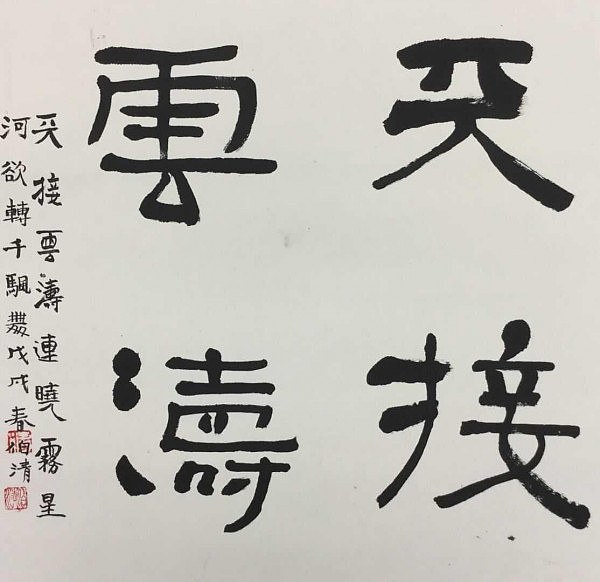 天接
雲濤
天接雲濤連曉霧星
河欲轉千颿舞戊戌春伯清